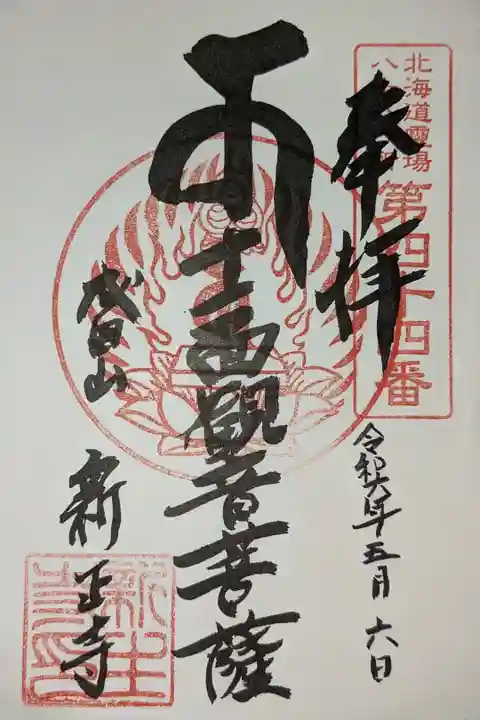 北海道霊場
八十八ヶ所
第四十四番
奉拝
令和六年五月六日
十一面観音菩薩
成田山
新正寺